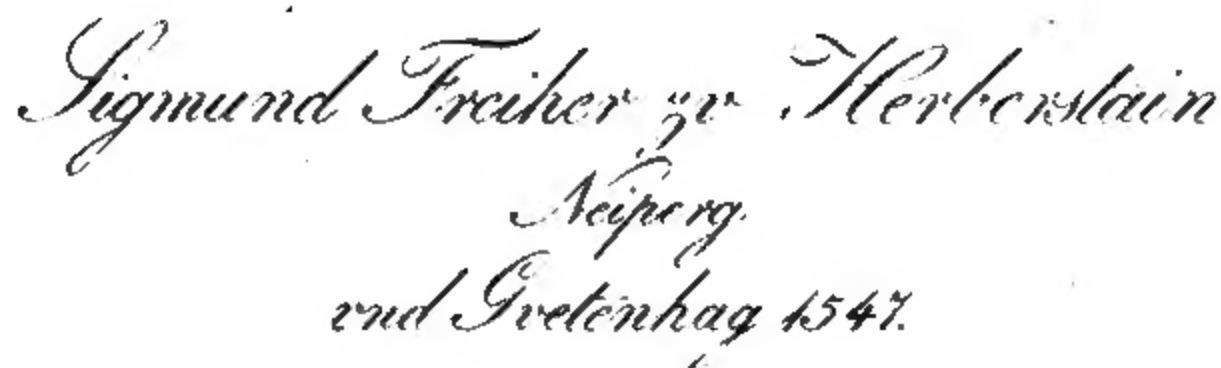 Sigmund Freiher zv Herberstain
Neiperg
vnd Gvetenhag 1547.